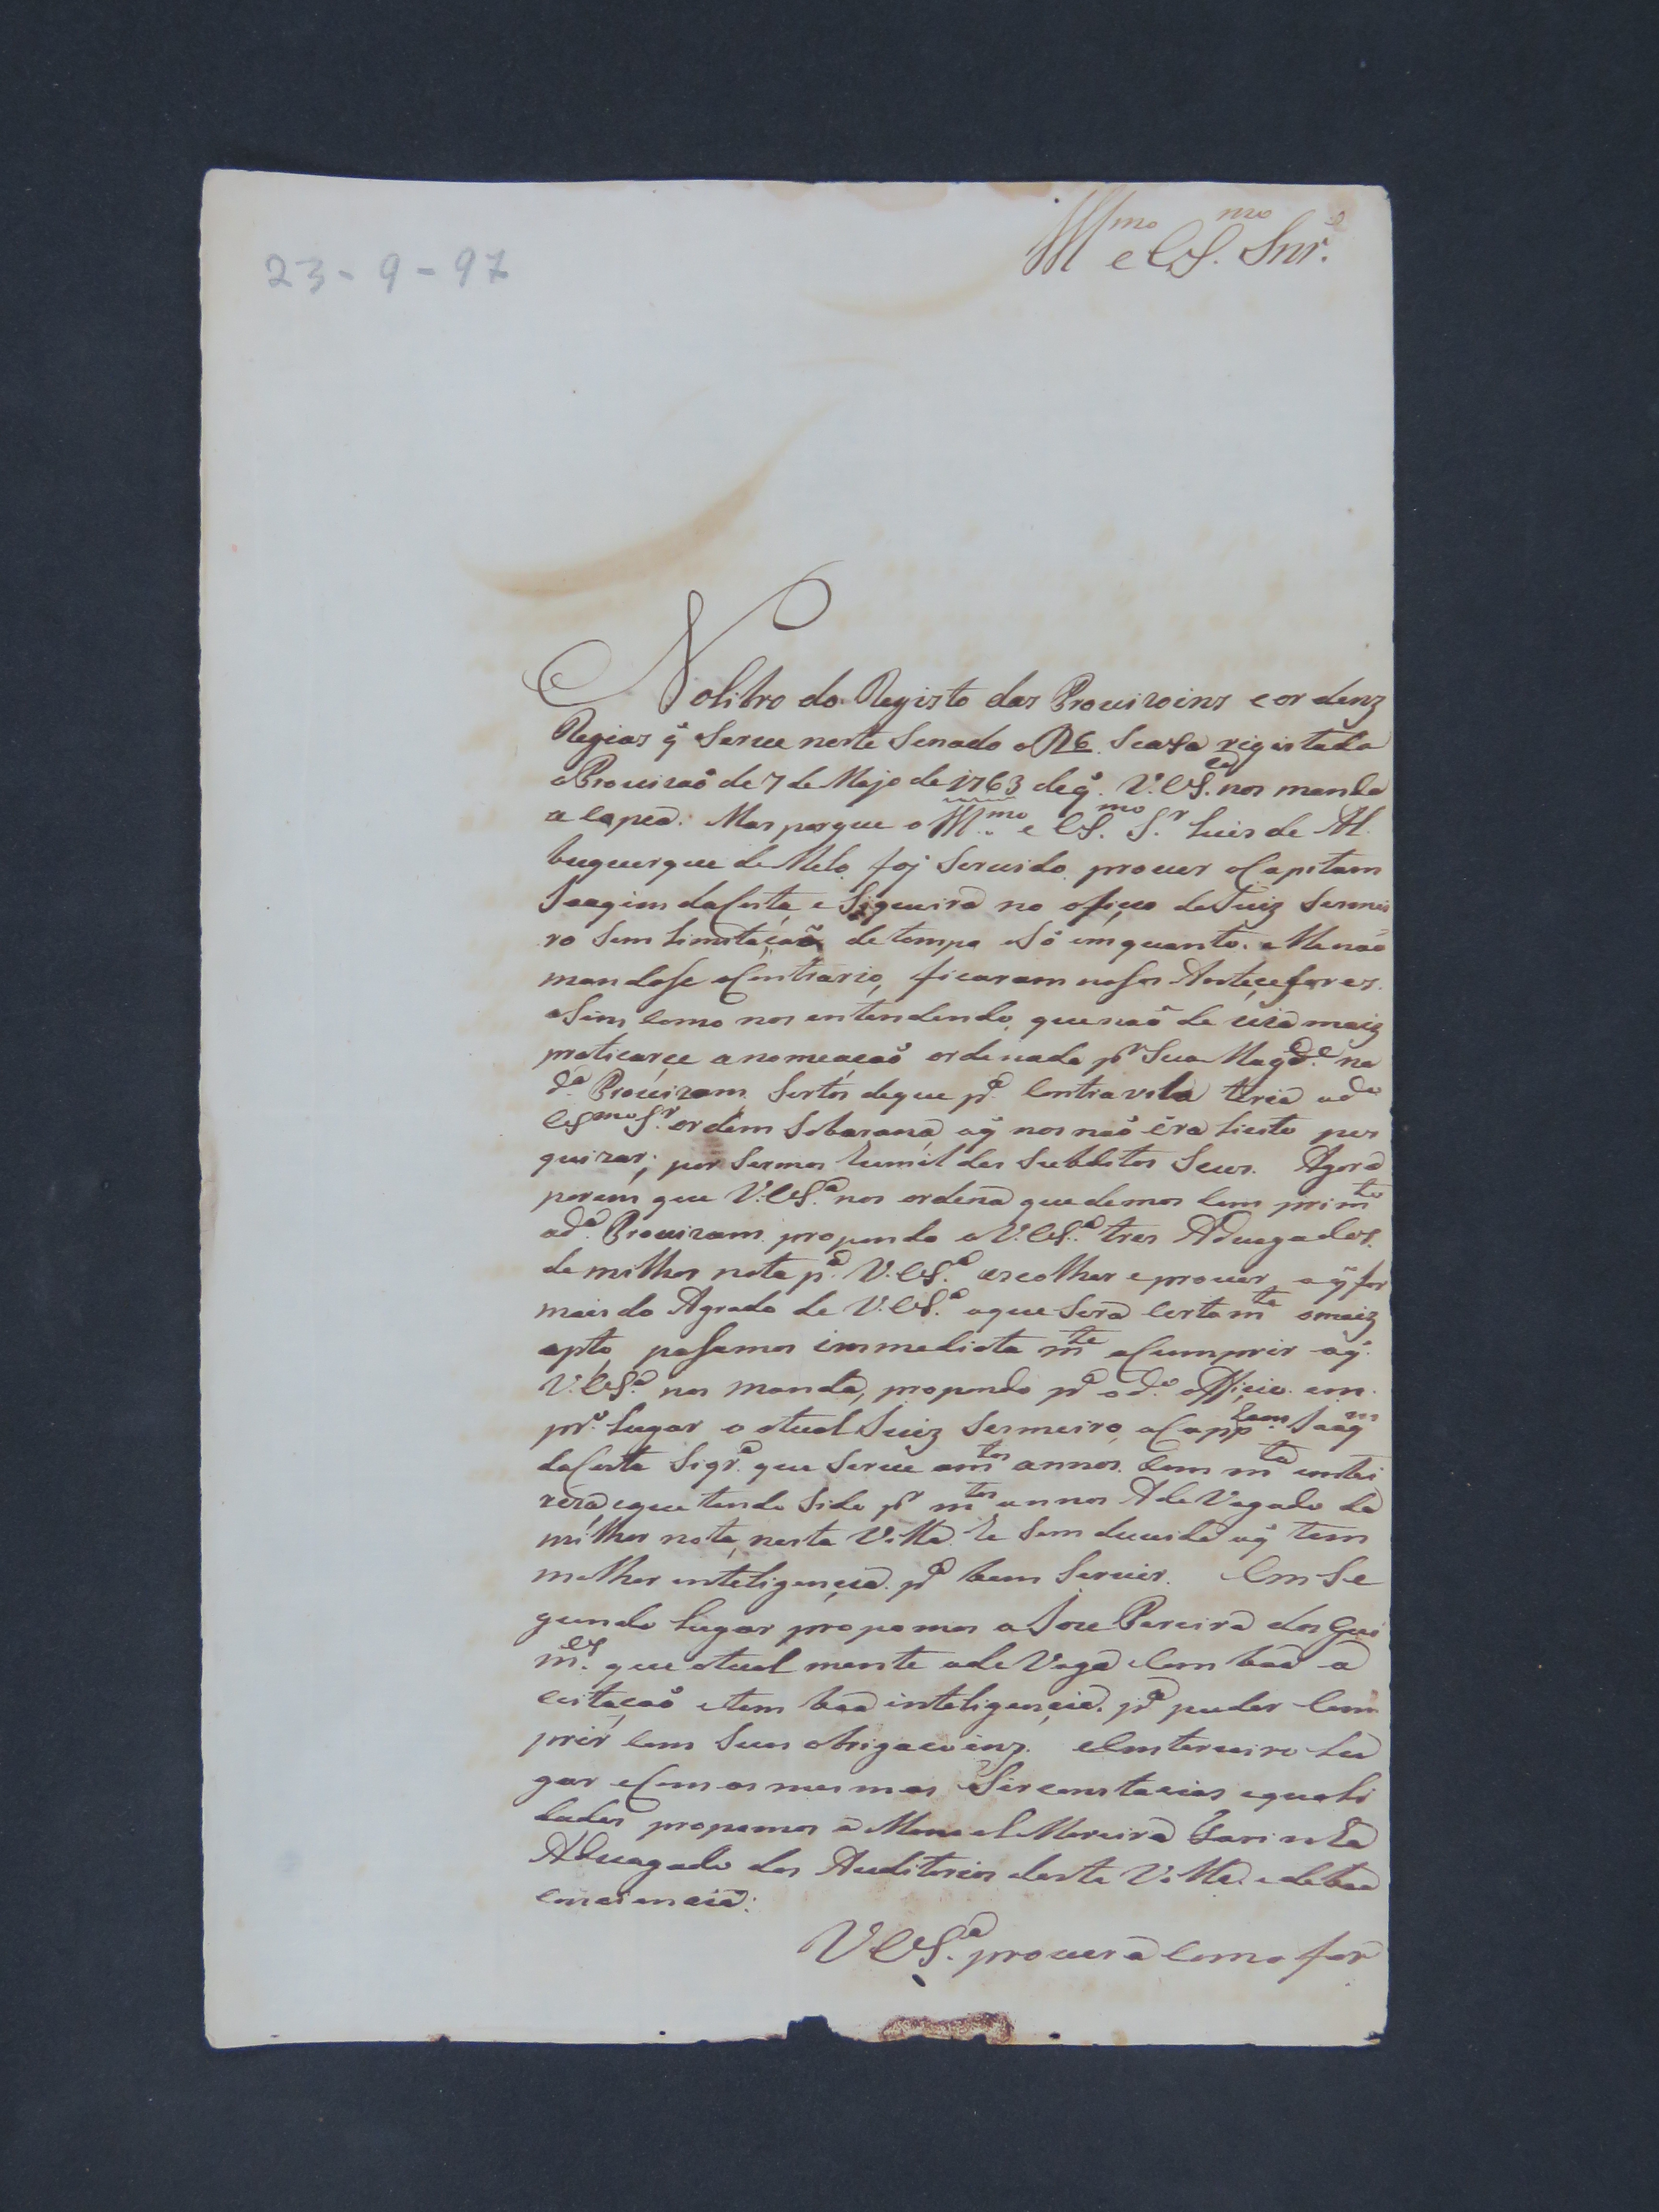 23-9-97
Illmo e Exmo Snr.
No livro do Registo das Provizoins e ordenz
Regias q̃ Serve neste Senado a R6. Se acha rigistada
a Provizaõ de 7 de Majo de 1763 de q̃. V. Exa. nos manda
a Copea. Mas porque o Illmo e Exmo Sr. Luis de Al
buquerque de Melo foj Servido prover o Capitam
Joaqim da Costa e Siqueira no ofiçio de Juiz Sesmei
ro Sem Limitaçaõ de tempo e Só emquanto elle naõ
mandase o Contrario, ficaram nosos Anteçesores
asim Como nos entendendo, que naõ deviria maiz
praticarçe a nomeacaõ ordenada pr Sua Magde. na
da. Provizam. Sertos de que pa. Contravila teria o do
Exmo Sr. ordem Sobarana, a q̃ nos naõ éra Liçito pes
quizar; por Sermos humildes Subditos Seus. Agora
porem que V. Exa. nos ordena que demos Comprimto
a da. Provizam propondo a V. Exa. tres Advogados.
de milhor nota pa. V. Exa. escolher e prover, a q̃ for
mais do Agrado de V. Exa. o que Será Certamte o maiz
apto, pasamos immediatamte a Cumprir o q̃.
V. Exa. nos manda, propondo pa. o do. Offiçio em
pro. Lugar o atual Juiz Sesmeiro, o Cappam. Joaqm
da Costa Siqra. que Serve a mtos annos. Com mta entei
reza, e que tendo Sido pr mtos annos AdeVogado de
milhor nota, nesta Villa. he Sem duvida o q̃ tem
milhor inteligençia. pa. bem Servir. Em Se
gundo Lugar propomos a Joze Pereira dos Gui
mes. que atualmente adeVoga Com boa a
ceitaçaõ e tem boa inteligençia. pa. puder Com
prir Com Suas obrigacoins. e Em terceiro Lu
gar e Com as mesmas Sirconstacias e quali
dades propomos a Manoel Moreira
Advogado dos Auditorios desta Villa. e de boa
conciencia.
V Exa. proverá Como for